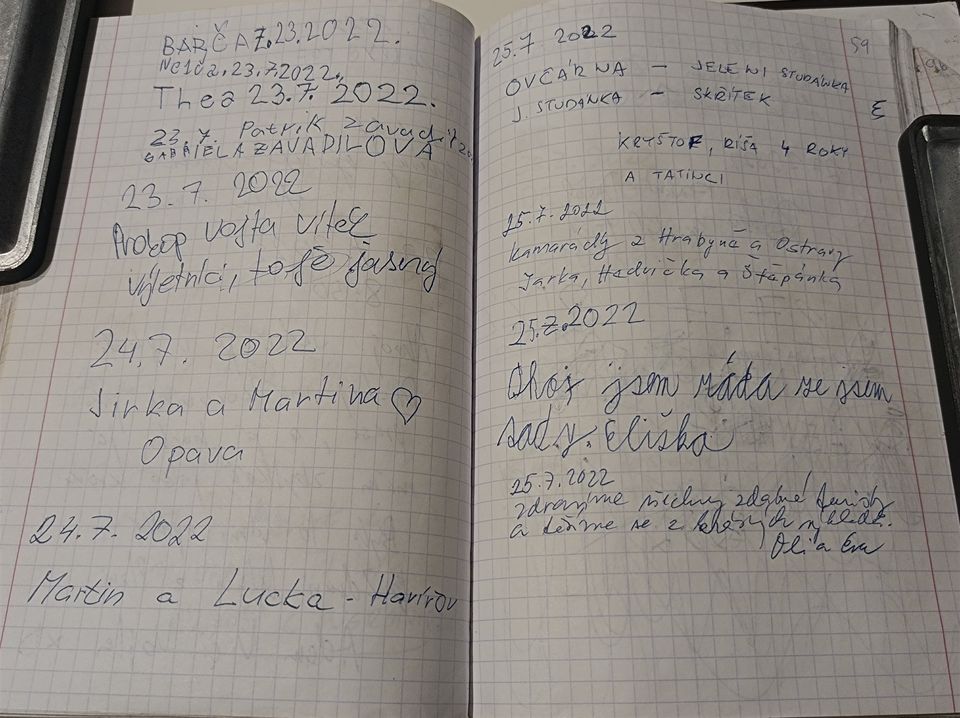 BARČA 7.23.2022.
23.7.2022.
Thea 23.7. 2022.
23. 7. Patrik Zavadil
GABRIELA ZAVADILOVÁ
23. 7. 2022
Prokop Vojta Vítek
výletníci, to je jasný
24.7. 2022
Jirka a Martina ♡
Opava
24.7. 2022
Martin a Lucka - Havířov
59
25.7 2022
OVČÁRNA - JELENÍ STUDÁNKA
J. STUDÁNKA - SKŘÍTEK
KRYŠTOF, RÍŠA 4 ROKY
A TATÍNCI
25.7.2022
Kamarádky z Hrabyně a Ostravy
Jarka, Hedvička a Štěpánka
25.7.2022
Ahoj jsem ráda že jsem
tady. Eliška
25.7.2022
zdravíme všechny zdatné turisty
a těšíme se z krásných výhledů.
Oli a Eva